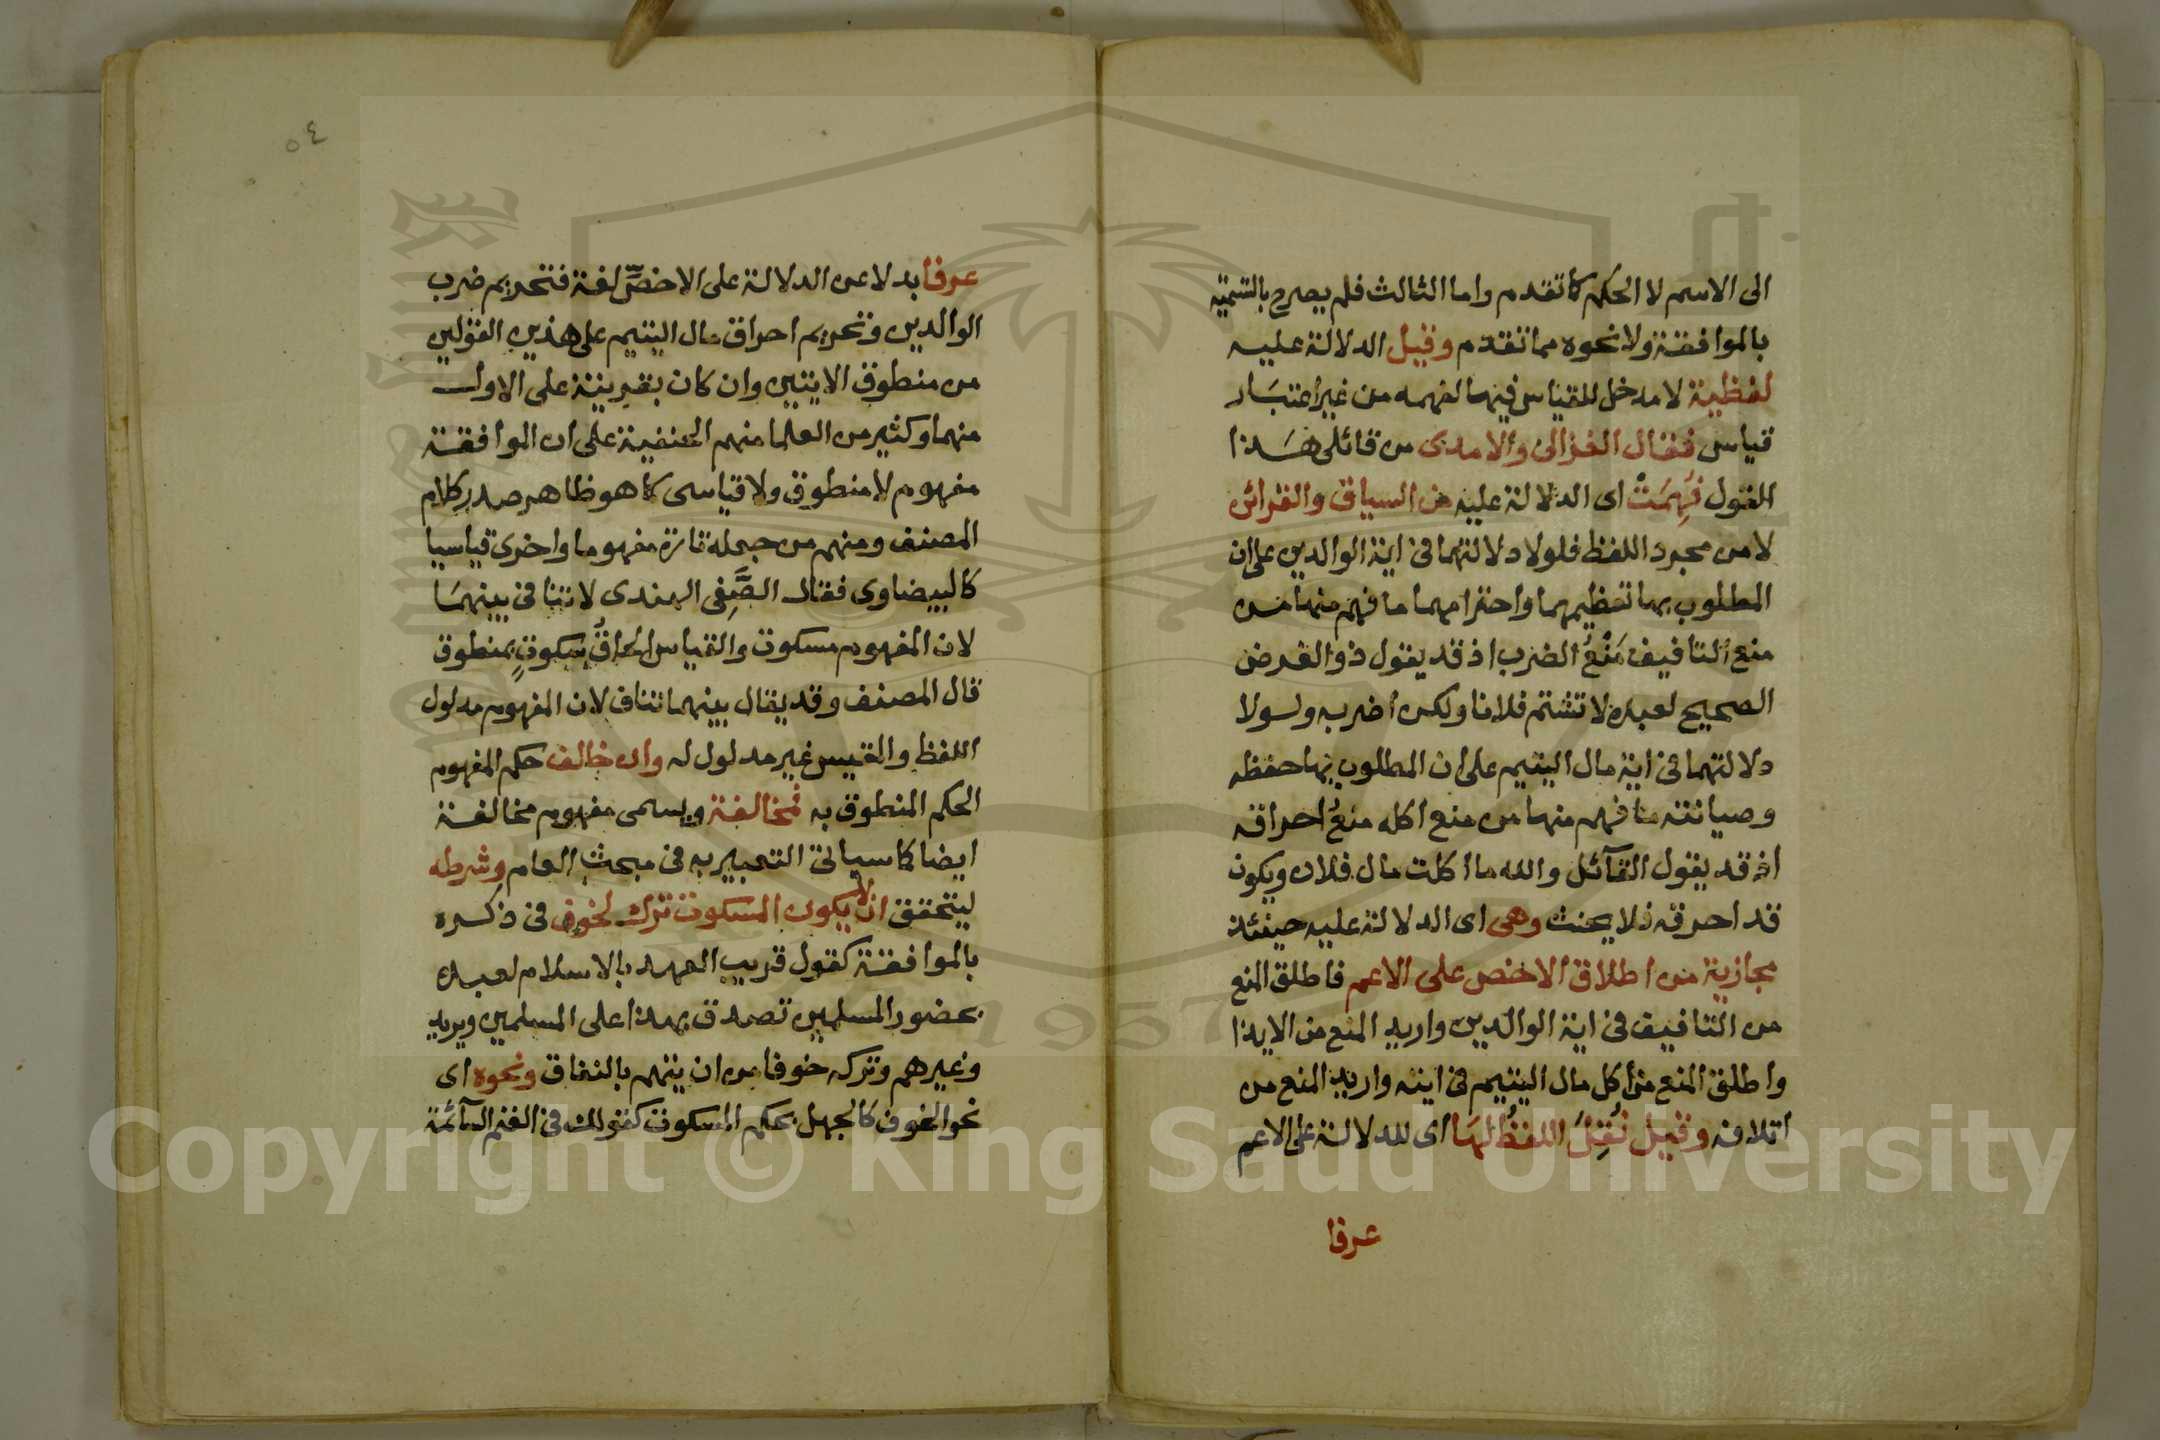 الى الاسم لا الحكم كما تقدم واما الثالث فلم يصرح بالتسمية
بالموافقة ولا نحوه مما تقدم وقيل الدلالة عليه
لفظية لا مدخل للقياس فيها لفهمه من غير اعتبَار
قياس فقال الغزالى والامدى من قائلى هَذا
القول فُهِمَتْ اى الدلالة عليه من السياق والقرائن
لا من مجرد اللفظ فلولا دلالتهما فى اية الوالدين على ان
المطلوب بهما تعظيمهما واحترامهما ما فهم منها من
منع التافيف مَنْعُ الضرب اذ قد يقول ذو الغرض
الصحيح لعبده لا تشتم فلانا ولكن اضربه ولولا
دلالتهما فى اية مال اليتيم على ان المطلوب بها حفظه
وصيانته ما فهم منها من منع اكله منعُ احراقه
اذ قد يقول القآئل والله ما اكلت مال فلان ويكون
قد احرقه فلا يحنث وهى اى الدلالة عليه حينئذ
مجازية من اطلاق الاخص على الاعم فاطلق المنع
من التافيف فى اية الوالدين واريد المنع من الايذا
واطلق المنع من اكل مال اليتيم فى ايته واريد المنع من
اتلافه وقيل نُقِلَ اللفظُ لهَا اى للدلالة على الاعم
عرفا
٥٤
عرفا بدلا عن الدلالة على الاخصِّ لغة فتحريم ضرب
الوالدين وتحريم احراق مال اليتيم على هذين القولين
من منطوق الايتين وان كان بقرينة على الاول
منهما وكثير من العلما منهم الحنفية على ان الموافقة
مفهوم لا منطوق ولا قياسى كما هو ظاهر صدر كلام
المصنف ومنهم من جعله تارة مفهوما واخرى قياسيا
كالبيضاوى فقال الصَّفِى الهندى لا تنافى بينهمَا
لان المفهوم مسكوت والقياس الحاقُ مسكوتٍ بمنطوق
قال المصنف وقد يقال بينهما تناف لان المفهوم مدلول
اللفظ والمقيس غير مدلول له وان خالف حكم المفهوم
الحكم المنطوق به فمخالفة ويسمى مفهوم مخالفة
ايضا كما سياتى التعبير به فى مبحث العام وشرطه
ليتحقق ان لا يكون المسكوت ترك لخوف فى ذكره
بالموافقة كقول قريب العهد بالاسلام لعبده
بحضور المسلمين تصدق بهذا على المسلمين ويريد
وغيرهم وتركه خوفا من ان يتهم بالنفاق ونحوه اى
نحو الخوف كالجهل بحكم المسكوت كقولك فى الغنم السآئمة
Copyright © King Saud University
1957